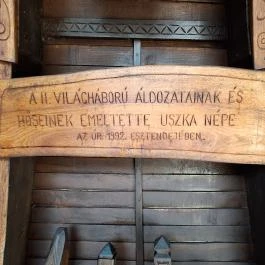 A II. VILÁGHÁBORÚ ÁLDOZATAINAK ÉS
HŐSEINEK EMELTETTE USZKA NÉPE
AZ ÚR 1992. ESZTENDEJÉBEN.